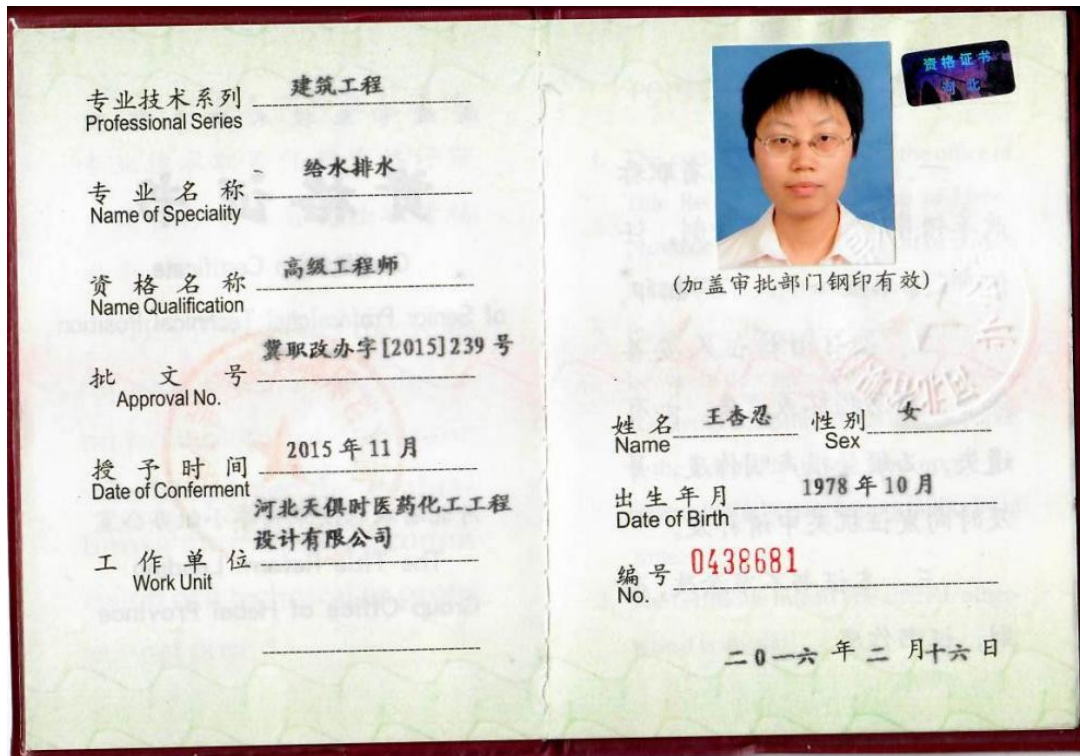 专业技术系列 建筑工程
Professional Series
专业名称 给水排水
Name of Speciality
资格名称 高级工程师
Name Qualification
批文号 冀职改办字[2015]239 号
Approval No.
授予时间 2015 年 11 月
Date of Conferment
工作单位 河北天俱时医药化工工程
设计有限公司
Work Unit
资格证书
河北
(加盖审批部门钢印有效)
姓名 王杏忍 性别 女
Name Sex
出生年月 1978 年 10 月
Date of Birth
编号 0438681
No.
二〇一六 年 二 月十六 日